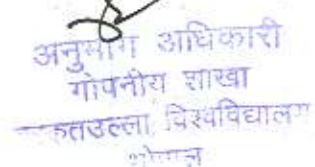 अनुभाग अधिकारी
गोपनीय शाखा
कतउल्ला विश्वविद्यालय
भोपाल